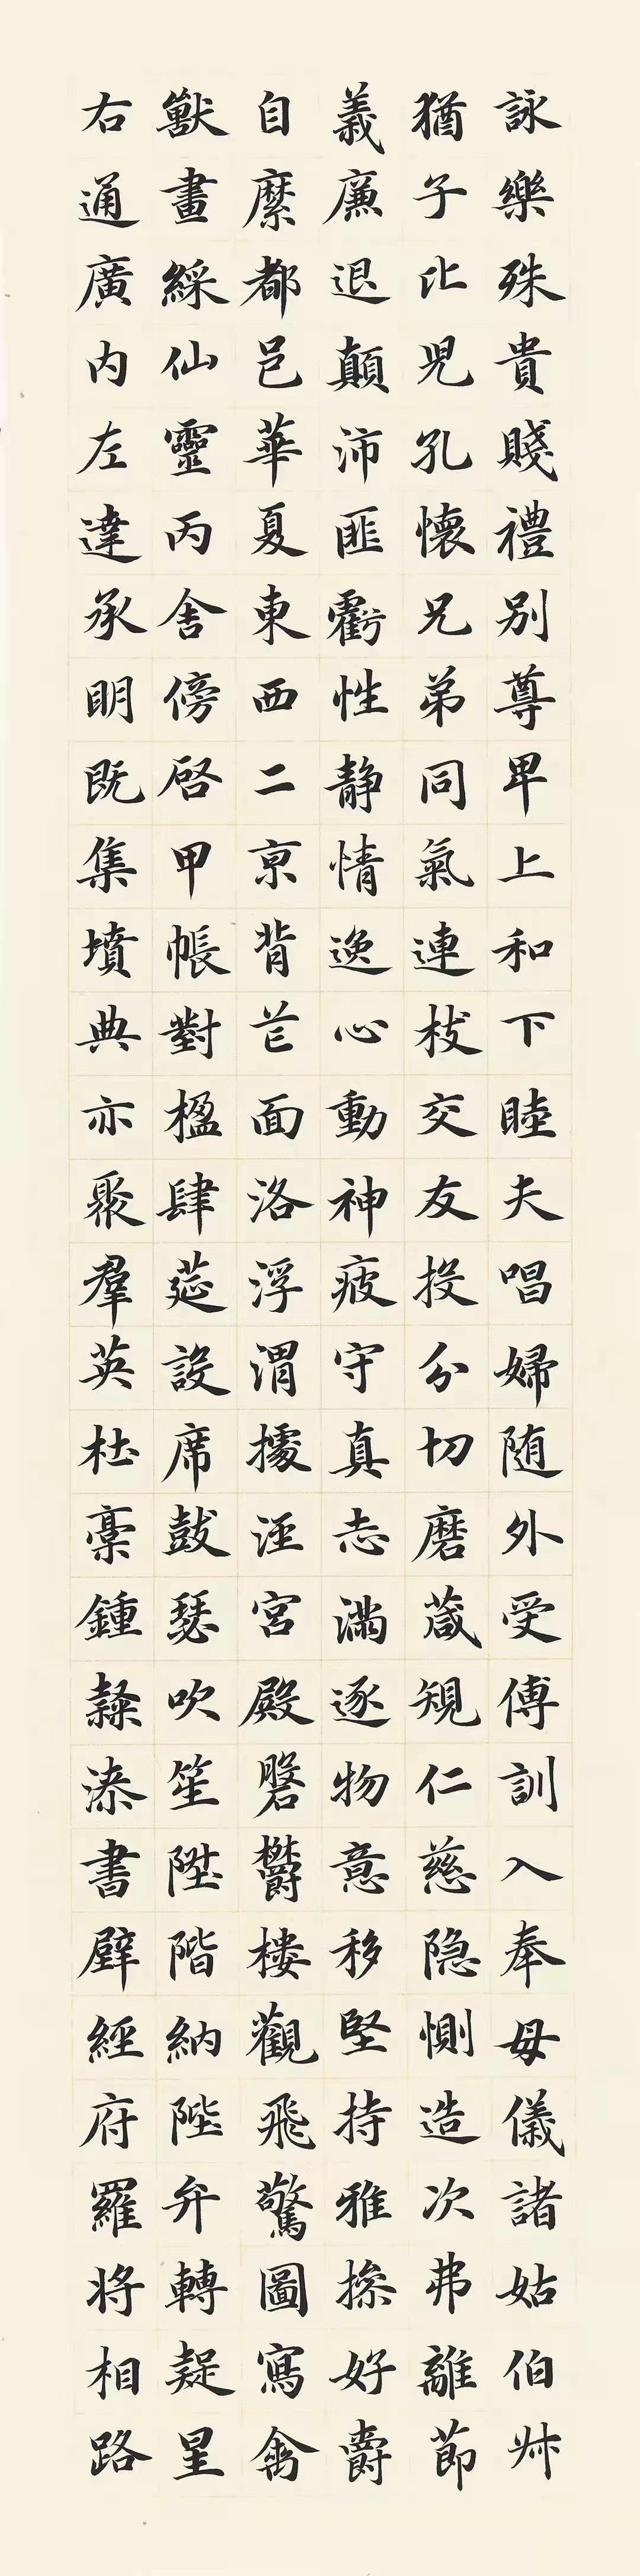 詠樂殊貴賤禮别尊卑上和下睦夫唱婦随外受傅訓入奉母儀諸姑伯叔
猶子比兒孔懷兄弟同氣連枝交友投分切磨箴規仁慈隐惻造次弗離節
義廉退顛沛匪虧性静情逸心動神疲守真志滿逐物意移堅持雅操好爵
自縻都邑華夏東西二亰背芒面洛浮渭據涇宮殿磐鬱樓觀飛驚圖寫禽
獸畫綵仙靈丙舍傍啓甲帳對楹肆筵設席鼓瑟吹笙陞階納陛弁轉疑星
右通廣内左達承明既集墳典亦聚羣英杜稾鍾隸漆書壁經府羅将相路